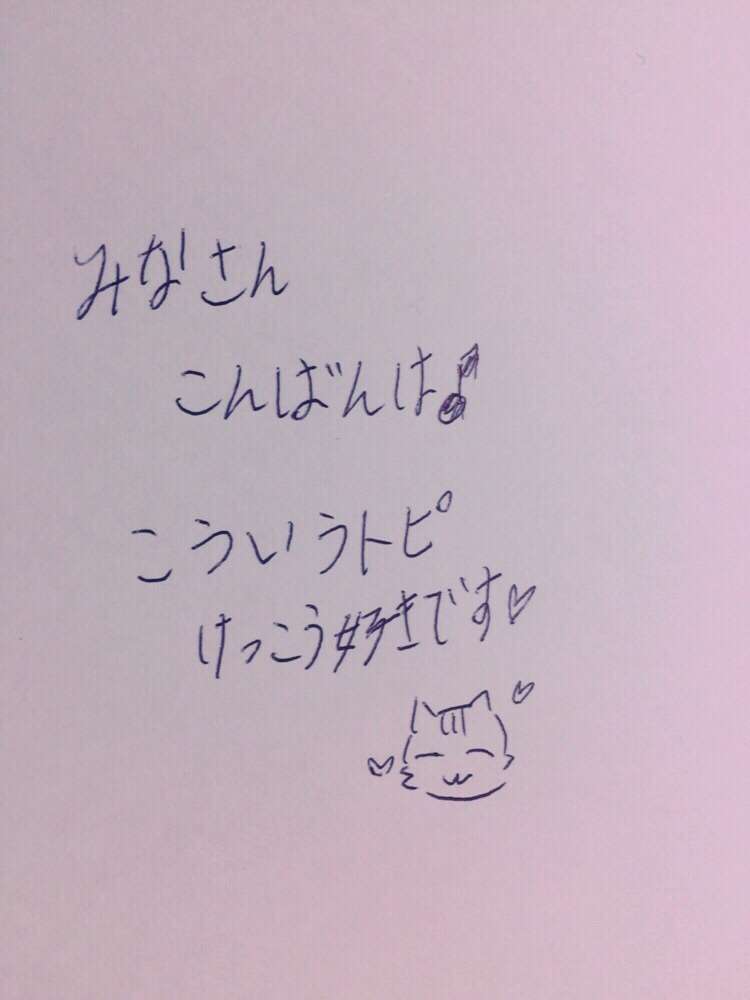 みなさん
こんばんは♪
こういうトピ
けっこう好きです♡